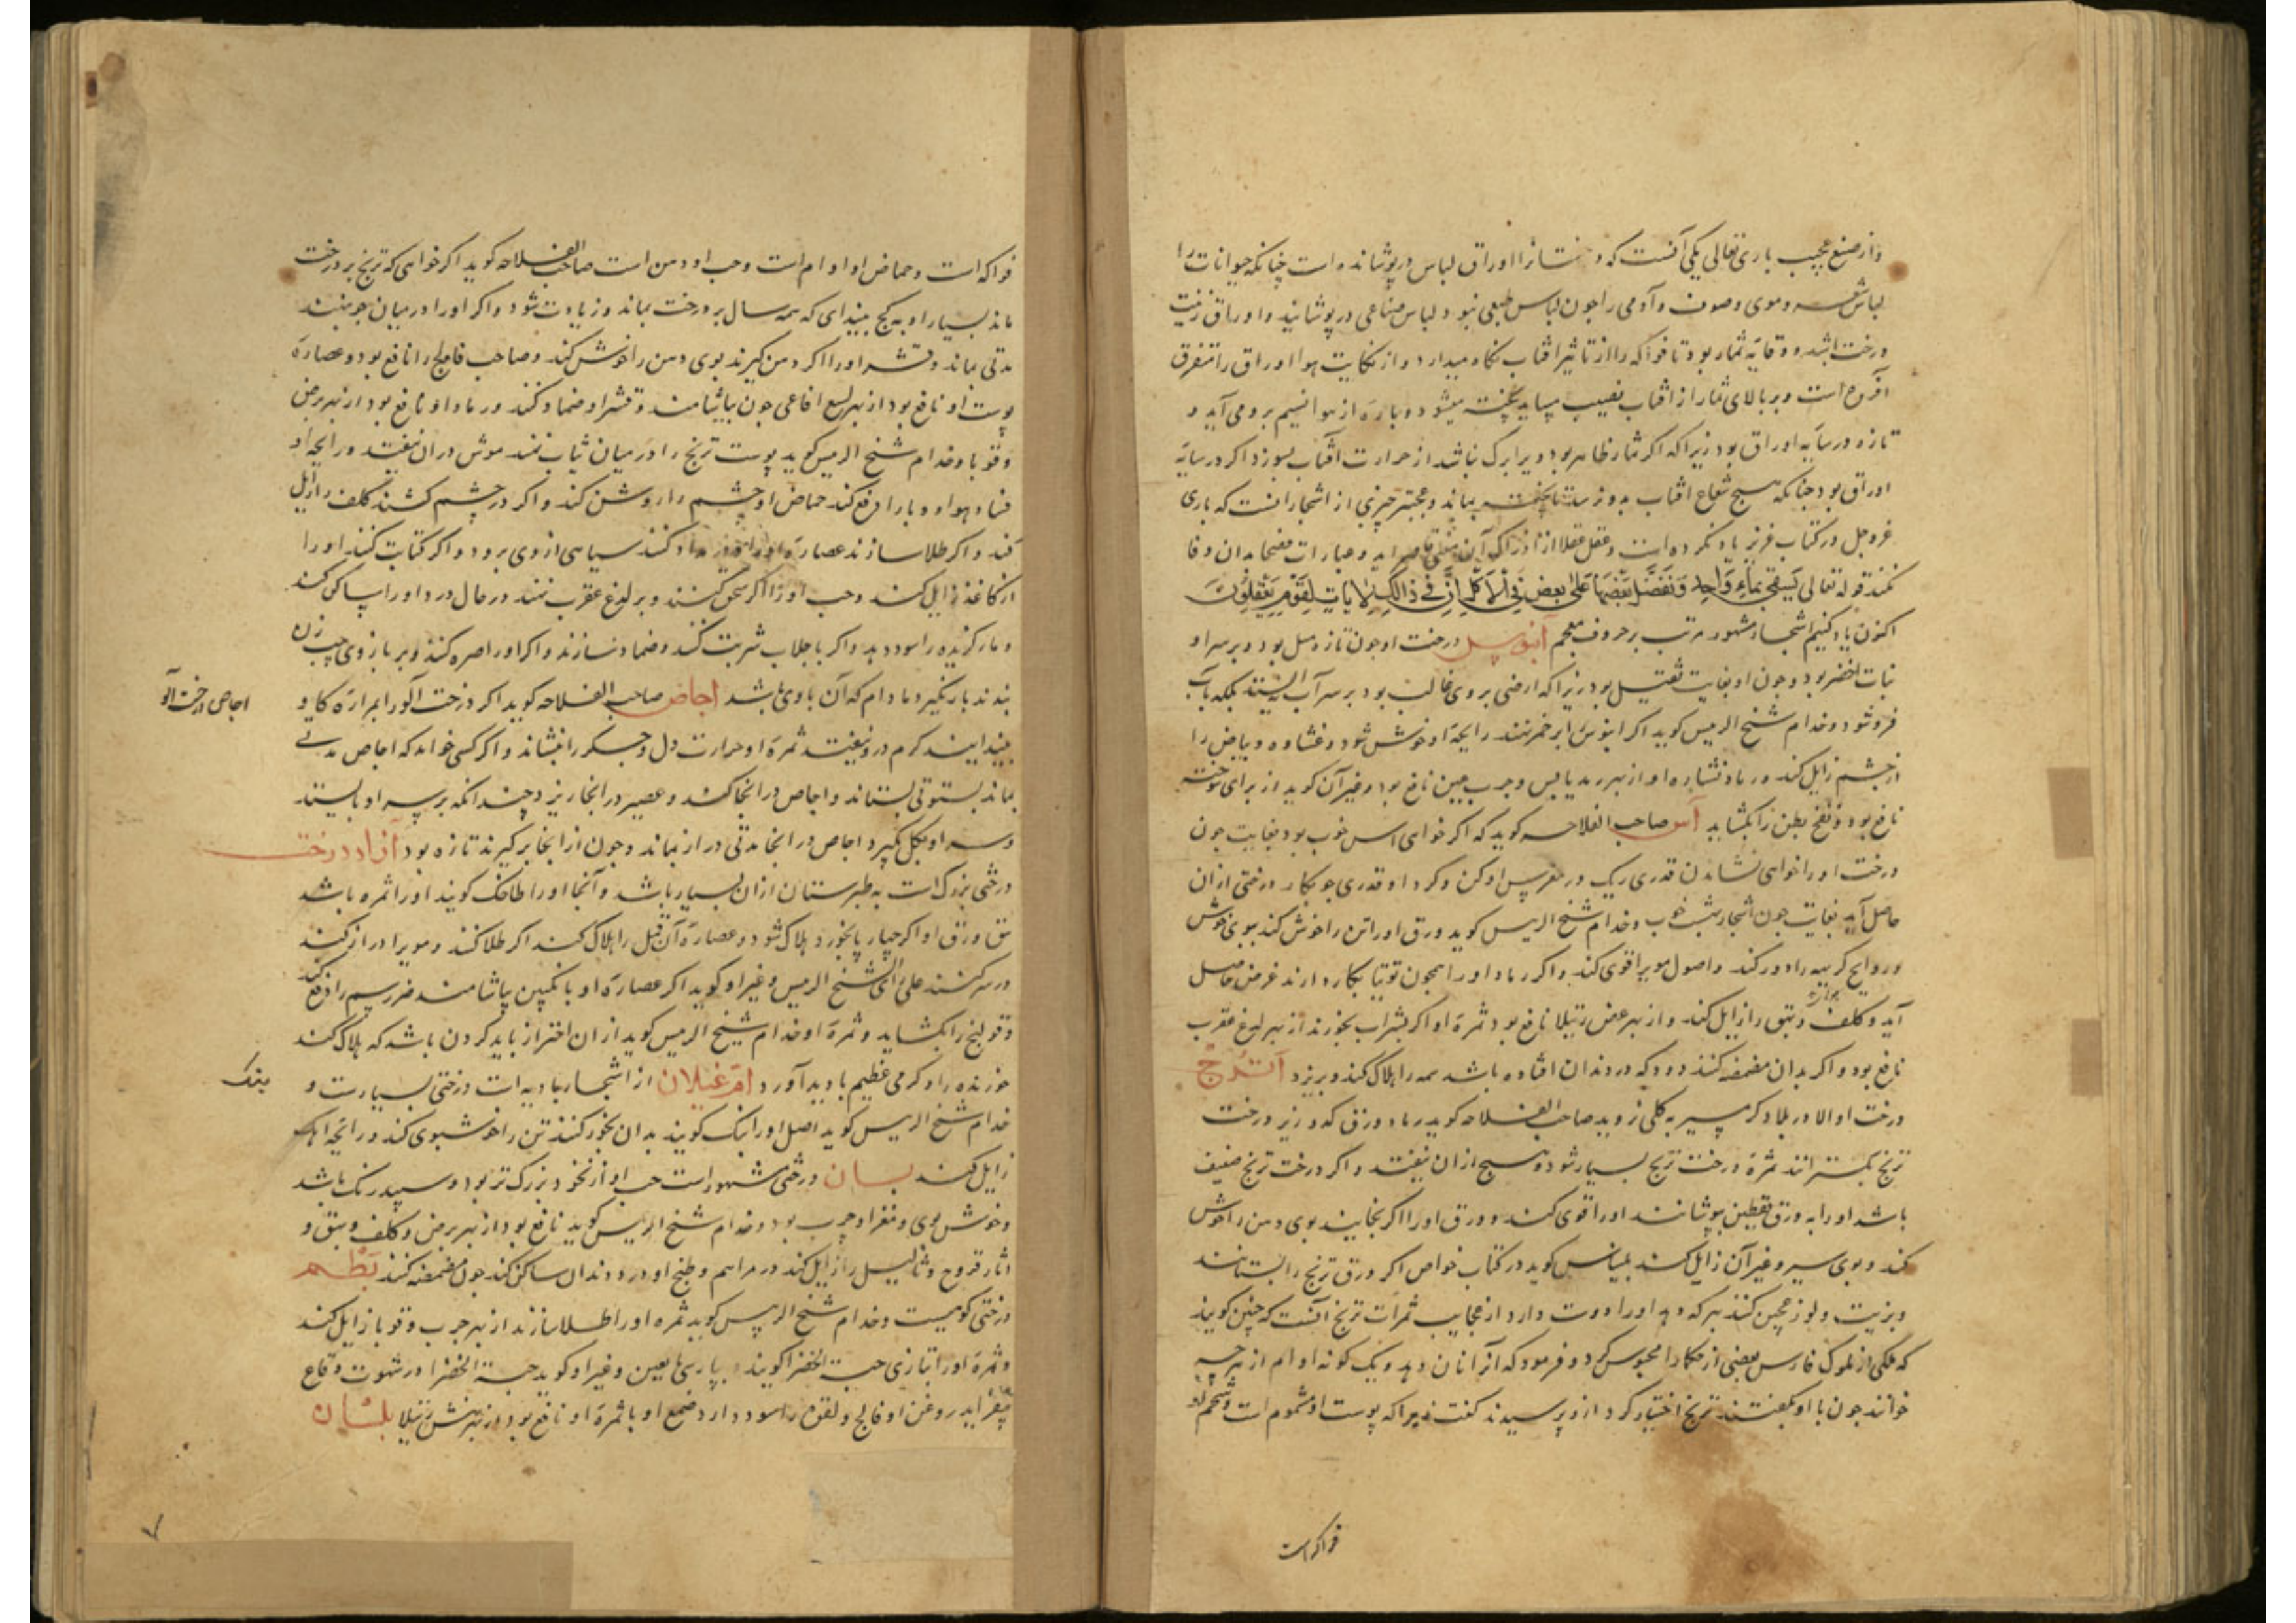 و از صنع عجیب باری تعالی یکی آنست که درختانرا اوراق لباس درپوشانده است چنانکه حیوانات را
لباس و موی و صوف و آدمی را چون لباس طبیعی نبود لباس صناعی درپوشانید و اوراق زینت
درخت باشد و وقایهٔ ثمار بود تا فواکه را از تاثیر آفتاب نگاه میدارد و از نکایت هوا اوراق را متفرق
است و بر بالای ثمار از آفتاب نصیب میابد پخته میشود و پارهٔ از هوا نسیم برو می آید و
تازه در سایهٔ اوراق بود زیرا که اگر ثمار ظاهر بود و برابرک نباشد از حرارت آفتاب بسوزد اگر در سایهٔ
اوراق بود چنانکه هیچ شعاع آفتاب بدو نرسد ناپخته بماند و عجبتر چیزی از اشجار آنست که باری
عز و جل در کتاب عزیز یاد کرده است و عقل عقلا از ادراک آن قاصر آید و عبارات فصحا بدان وفا
نکند قوله تعالی یُسقی بماءٍ واحد و نفضل بعضها علی بعض فی الاکل ان فی ذالک لایات لقوم یعقلون
اکنون یاد کنیم اشجار مشهور مرتب بر حروف معجم آبنوس درخت او چون تازه بود و بر سر او
نبات اخضر بود و چون او بغایت ثقیل بود زیرا که ارضی بروی غالب بود بر سر آب نه ایستد بلکه بآب
فرو شود و خدام شیخ الرییس گوید اگر ابنوس را بر خمر نهند رایحهٔ او خوش شود و غشاوه و بیاض را
از چشم زایل کند و رماد نشارهٔ او از بهر رمد یابس و جرب عین نافع بود و غیر آن گوید از برای سوخته
نافع بود و نفخ بطن را بگشاید آس صاحب الفلاحه گوید که اگر خواهی آس خوب بود بغایت چون
درخت او را خواهی نشاندن قدری ریک در مغرس او کن و گرد او قدری جو بکار درختی از آن
حاصل آید بغایت چون اشجار بهشت خوب و خدام شیخ الرییس گوید ورق او را تن را خوش کند ببوی خوش
و روایح کریهه را دور کند و اصول مویرا قوی کند و اگر رماد او را همچون توتیا بکار دارند غرض حاصل
آید و کلف و بهق را زایل کند و از بهر عض رتیلا نافع بود ثمرهٔ او اگر بشراب بخورند از بهر لدغ عقرب
نافع بود و اگر بدان مضمضه کنند دود که در دندان افتاده باشد همه را هلاک کند و بریزد اترج
درخت او الا در بلاد گرمسیر به کلی نروید صاحب الفلاحه گوید رماد ورق کدو زیر درخت
ترنج بگسترانند ثمرهٔ درخت ترنج بسیار شود و هیچ از آن نیفتد و اگر درخت ترنج ضعیف
باشد او را به ورق یقطین بپوشانند او را قوی کند و ورق او را اگر بخایند بوی دهن را خوش
کند و بوی سیر و غیر آن زایل کند بلیناس گوید در کتاب خواص اگر ورق ترنج را بستانند
و بزیت و لوز معجون کنند بهر که دهد او را دوست دارد از عجایب ثمرات ترنج آنست که چنین گویند
که ملکی از ملوک فارس بعضی از حکما را محبوس کرد و فرمود که آنرا نان دهد و یک گونه ادام از هرچه
خوانند چون با او بگفتند ترنج اختیار کرد ازو پرسیدند گفت زیرا که پوست او مشموم است و شحم او
فواکه است
فواکه است و حماض او ادام است و حب او دهن است صاحب الفلاحه گوید اگر خواهی که ترنج بر درخت
ماند بسیار او به گچ بیندای که همه سال بر درخت بماند و زیادت شود و اگر او را در میان جو نهند
مدتی بماند و قشر او را اگر در دهن گیرند بوی دهن را خوش کند و صاحب فالج را نافع بود و عصارهٔ
پوست او نافع بود از بهر لسع افاعی چون بیاشامند و قشر او ضماد کنند و رماد او نافع بود از بهر برص
و قوبا و خدام شیخ الرییس گوید پوست ترنج را در میان ثیاب نهند موش در آن نیفتد و رایحهٔ او
فساد هوا و وبا را دفع کند حماض او چشم را روشن کند و اگر در چشم کشند کلف زایل
کند و اگر طلا سازند عصارهٔ او کنند سیاهی از وی برود و اگر کتابت کنند او را
از کاغذ زایل کند و حب او را اگر سحق کنند و بر لدغ عقرب نهند در حال درد او را ساکن کند
و مار گزیده را سود دهد و اگر با جلاب شربت کنند و ضماد سازند و اگر او را صره کنند و بر بازوی چپ زن
بندند بار نگیرد مادام که آن با وی باشد اجاص صاحب الفلاحه گوید اگر درخت آلو را بمرارهٔ گاو
بیندایند کرم درو نیفتد ثمرهٔ او حرارت دل و جگر را بنشاند و اگر کسی خواهد که اجاص مدتی
بماند بستوقی بستاند و اجاص در آنجا کند و عصیر در آنجا ریزد چندانکه بر سر او بایستد
و سر او بگل گیرد اجاص در آنجا مدتی دراز بماند و چون از آنجا برگیرند تازه بود آزاد درخت
درختی بزرگ است به طبرستان از آن بسیار باشد و آنجا او را طاحک گویند او را ثمره باشد
ورق او اگر چهارپا بخورد هلاک شود و عصارهٔ آن قمل را هلاک کند اگر طلا کنند و مویرا دراز کند
علی رای شیخ الرییس و غیر او گوید اگر عصارهٔ او با انگبین بیاشامند ضرر سم را دفع کند
و قولنج را بگشاید و ثمرهٔ او خدام شیخ الرییس گوید از آن احتراز باید کردن باشد که هلاک کند
خورنده را و کرمی عظیم بادید آورد ام غیلان از اشجار بادیه است درختی بسیارست و
خدام شیخ الرییس گوید اصل او را بنک گویند بدان بخور کنند تن را خوشبوی کند و رایحهٔ آهک
زایل کند بان درختی مشهور است حب او از نخود بزرگتر بود و سپید رنگ باشد
و خوش بوی و مغز او چرب بود و خدام شیخ الرییس گوید نافع بود از بهر برص و کلف و بهق و
آثار قروح و ثآلیل را زایل کند در مراهم و طبخ او درد دندان ساکن کند چون مضمضه کنند بطم
درختی کوهیست و خدام شیخ الرییس گوید ثمره او را طلا سازند از بهر جرب و قوبا زایل کند
و ثمرهٔ او را بتازی حبة الخضرا گویند و غیر او گوید حبة الخضرا در شهوت وقاع
بیفزاید روغن او فالج و لقوه را سود دارد صمغ او با ثمرهٔ او نافع بود از بهر نهش رتیلا بلسان
اجاص درخت آلو
بنک